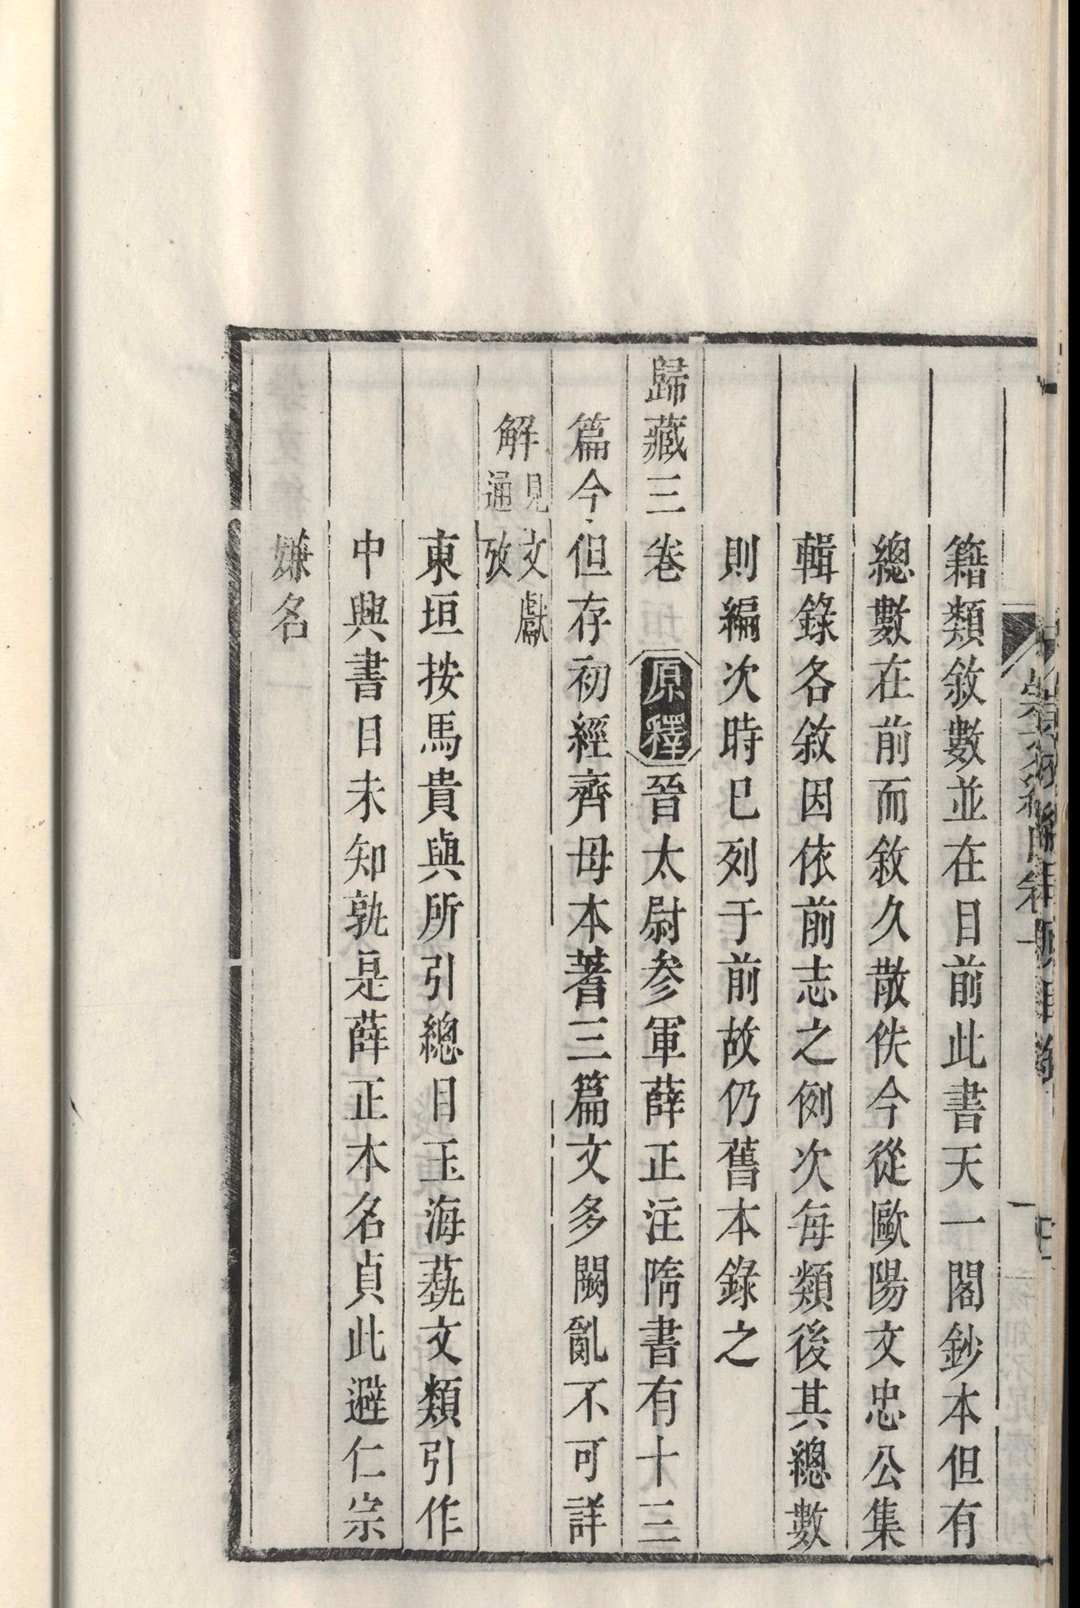 籍類敘數並在目前此書天一閣鈔本但有
總數在前而敘久散佚今從歐陽文忠公集
輯錄各敘因依前志之例次每類後其總數
則編次時已列于前故仍舊本錄之
歸藏三卷 原釋 晉太尉參軍薛正注隋書有十三
篇今但存初經齊母本蓍三篇文多闕亂不可詳
解 見文獻通攷
東垣按馬貴與所引總目玉海藝文類引作
中興書目未知孰是薛正本名貞此避仁宗
嫌名